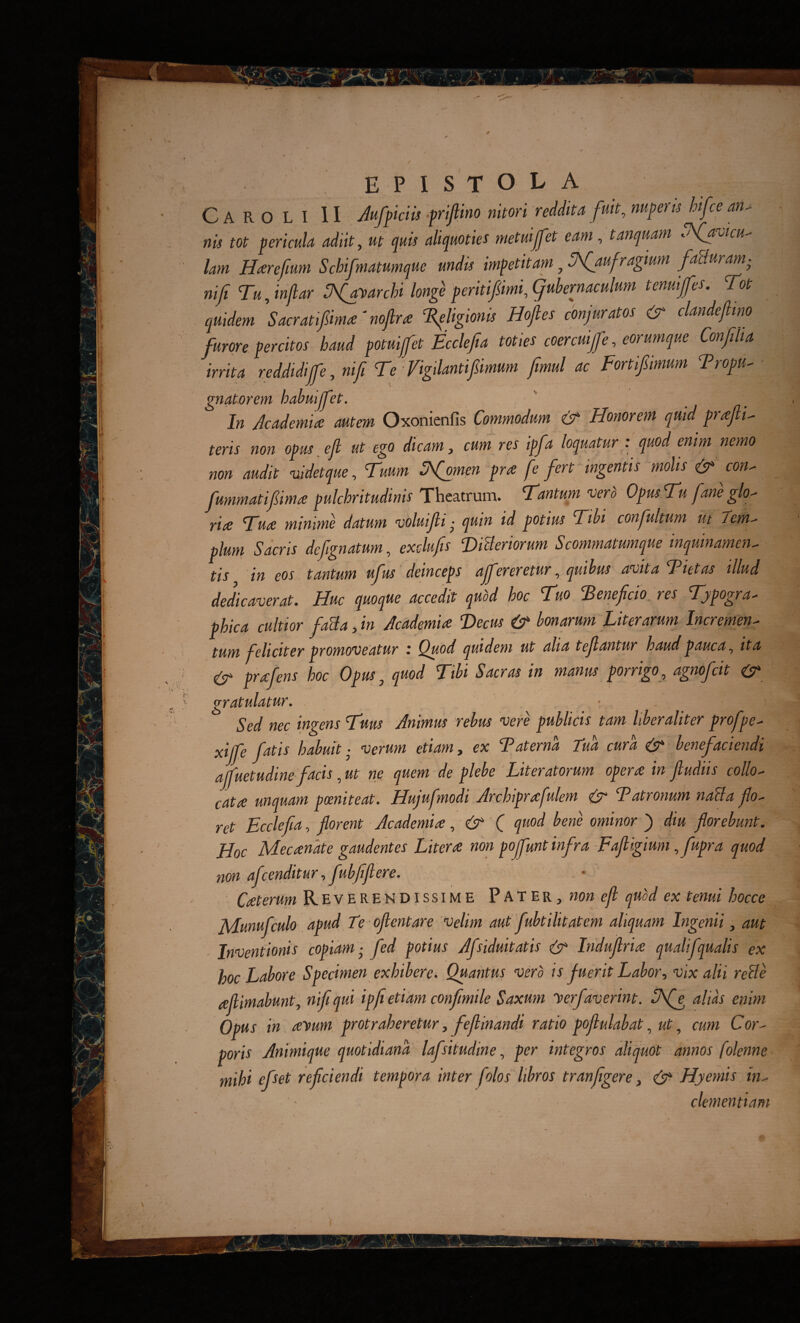 EPISTOLA
CAROLI II Auſpiciis priſtino nitori reddita fuit, nuperis hiſce an-
nis tot pericula adiit, ut quis aliquoties metuiſſet eam, tanquam Navicu-
lam Hæreſium Schiſmatumque undis impetitam, Naufragium facturam;
niſi Tu, inſtar Navarchi longè peritiſſimi, Gubernaculum tenuiſſes. Tot
quidem Sacratiſſimæ noſtræ Religionis Hoſtes conjuratos & clandeſtino
furore percitos haud potuiſſet Eccleſia toties coercuiſſe, eorumque Conſilia
irrita reddidiſſe, niſi Te Vigilantiſſimum ſimul ac Fortiſſimum Propu-
gnatorem habuiſſet.
In Academiæ autem Oxonienſis Commodum & Honorem quid præſti-
teris non opus eſt ut ego dicam, cum res ipſa loquatur: quod enim nemo
non audit videtque, Tuum Nomen præ ſe fert ingentis molis & con-
ſummatiſſimæ pulchritudinis Theatrum. Tantum verò Opus Tu ſanè glo-
riæ Tuæ minimè datum voluiſti; quin id potius Tibi conſultum ut Tem-
plum Sacris deſignatum, excluſis Dicteriorum Scommatumque inquinamen-
tis, in eos tantum uſus deinceps aſſereretur, quibus avita Pietas illud
dedicaverat. Huc quoque accedit quòd hoc Tuo Beneficio res Typogra-
phica cultior facta, in Academiæ Decus & bonarum Literarum Incremen-
tum feliciter promoveatur: Quod quidem ut alia teſtantur haud pauca, ita
& præſens hoc Opus, quod Tibi Sacras in manus porrigo, agnoſcit &
gratulatur.
Sed nec ingens Tuus Animus rebus verè publicis tam liberaliter proſpe-
xiſſe ſatis habuit; verum etiam, ex Paternâ Tuâ curâ & benefaciendi
aſſuetudine facis, ut ne quem de plebe Literatorum operæ in ſtudiis collo-
catæ unquam pœniteat. Hujuſmodi Archipræſulem & Patronum nacta flo-
ret Eccleſia, florent Academiæ, & ( quod benè ominor ) diu florebunt.
Hoc Mecænate gaudentes Literæ non poſſunt infra Faſtigium, ſupra quod
non aſcenditur, ſubſiſtere.
Cæterum REVERENDISSIME PATER, non eſt quòd ex tenui hocce
Munuſculo apud Te oſtentare velim aut ſubtilitatem aliquam Ingenii, aut
Inventionis copiam; ſed potius Aſsiduitatis & Induſtriæ qualiſqualis ex
hoc Labore Specimen exhibere. Quantus verò is fuerit Labor, vix alii rectè
æſtimabunt, niſi qui ipſi etiam conſimile Saxum verſaverint. Ne aliàs enim
Opus in ævum protraheretur, feſtinandi ratio poſtulabat, ut, cum Cor-
poris Animique quotidianâ laſsitudine, per integros aliquot annos ſolenne
mihi eſset reficiendi tempora inter ſolos libros tranſigere, & Hyemis in-
clementiam